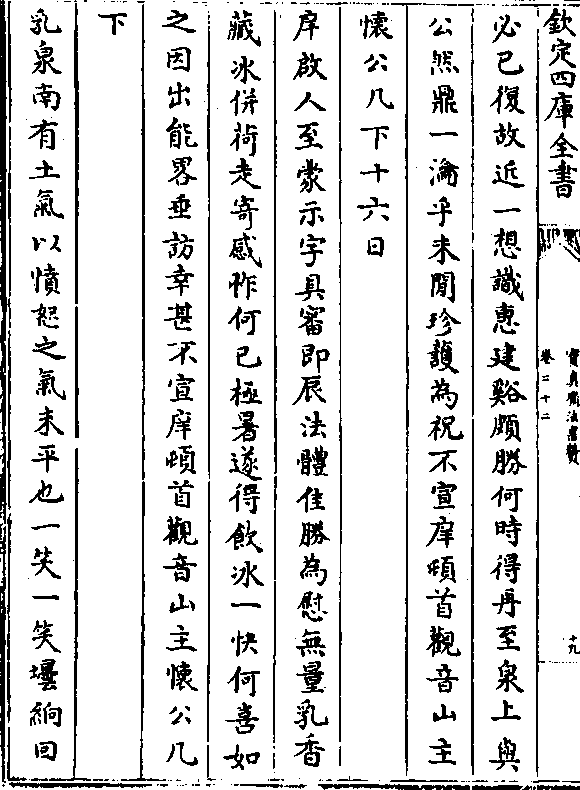 欽定四庫全書
寶真齋法書贊
卷二十二
十九
必已復故近一想識惠建谿頗勝何時得再至泉上與
公然鼎一瀹乎未閒珍護為祝不宣庠頓首觀音山主
懷公几下十六日
庠啟人至蒙示字具審即辰法體佳勝為慰無量乳香
藏冰併荷走寄感怍何已極暑遂得飲冰一快何喜如
之因出能畧垂訪幸甚不宣庠頓首觀音山主懷公几
下
乳泉南有土氣以憤恕之氣未平也一笑一笑壜絅回